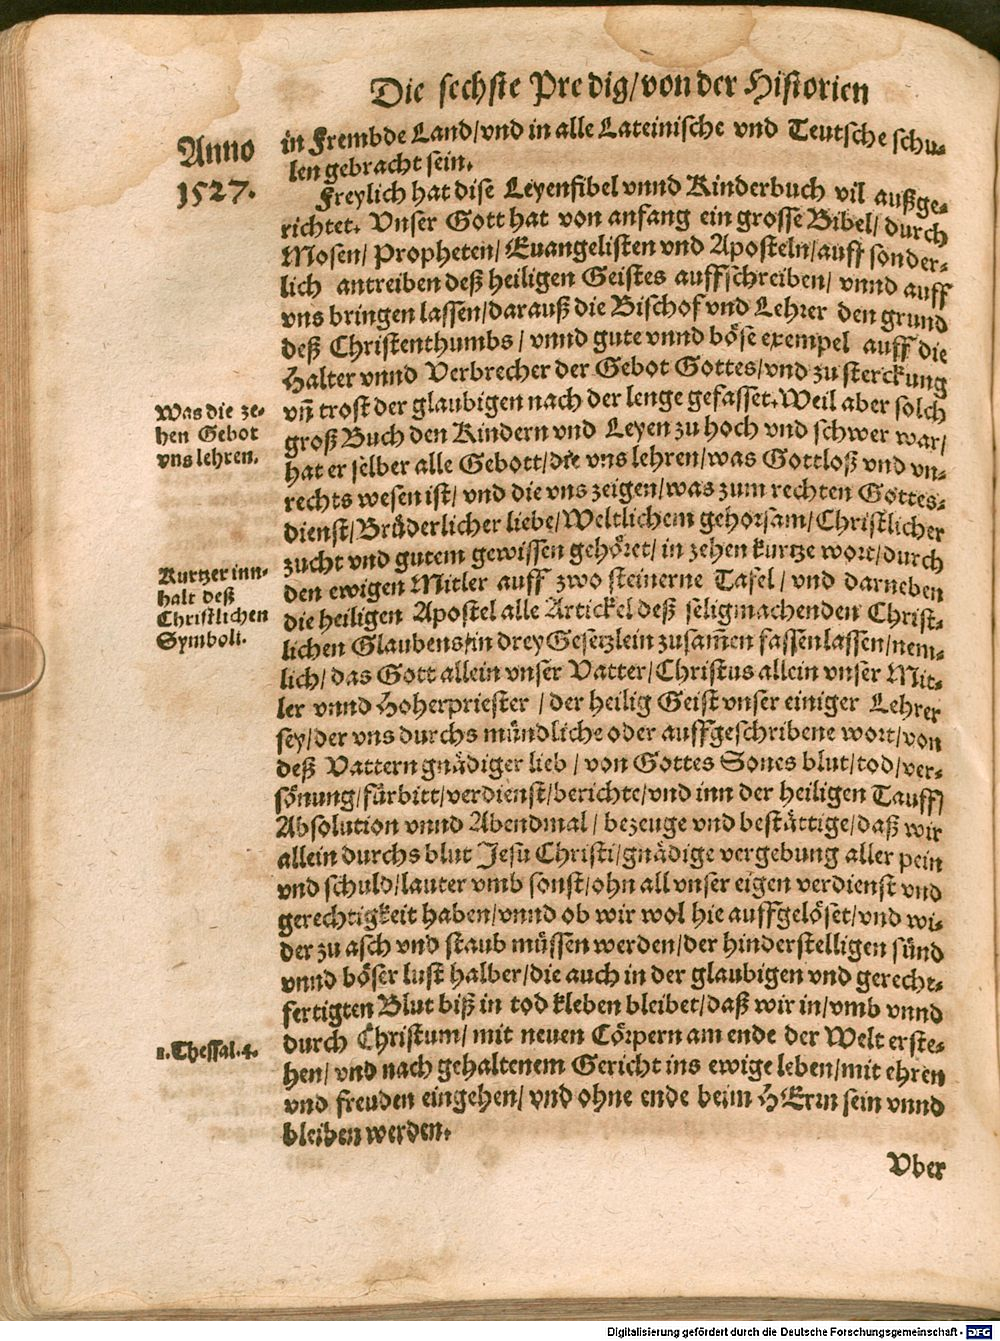 Die sechste Predig/von der Historien
Anno
1527.
in frembde Land/vnd in alle Lateinische vnd Teutsche schu-
len gebracht sein.
Freylich hat dise Leyenfibel vnnd Kinderbuch vil außge-
richtet. Vnser Gott hat von anfang ein grosse Bibel/durch
Mosen/Propheten/Euangelisten vnd Aposteln/auff sonder-
lich antreiben deß heiligen Geistes auffschreiben/vnnd auff
vns bringen lassen/darauß die Bischof vnd Lehrer den grund
deß Christenthumbs/vnnd gute vnnd böse exempel auff die
Halter vnnd Verbrecher der Gebot Gottes/vnd zu sterckung
vñ trost der glaubigen nach der lenge gefasset. Weil aber solch
groß Buch den Kindern vnd Leyen zu hoch vnd schwer war/
hat er selber alle Gebott/die vns lehren/was Gottloß vnd vn-
rechts wesen ist/vnd die vns zeigen/was zum rechten Gottes-
dienst/Brüderlicher liebe/Weltlichem gehorsam/Christlicher
zucht vnd gutem gewissen gehöret/in zehen kurtze wort/durch
den ewigen Mitler auff zwo steinerne Tafel/vnd darneben
die heiligen Apostel alle Artickel deß seligmachenden Christ-
lichen Glaubens/in drey Gesetzlein zusam̃en fassen lassen/nem-
lich/das Gott allein vnser Vatter/Christus allein vnser Mit-
ler vnnd Hoherpriester/der heilig Geist vnser einiger Lehrer
sey/der vns durchs mündliche oder auffgeschribene wort/von
deß Vattern gnädiger lieb/von Gottes Sones blut/tod/ver-
sönung/fürbitt/verdienst/berichte/vnd inn der heiligen Tauff/
Absolution vnnd Abendmal/bezeuge vnd bestättige/daß wir
allein durchs blut Jesu Christi/gnädige vergebung aller pein
vnd schuld/lauter vmb sonst/ohn all vnser eigen verdienst vnd
gerechtigkeit haben/vnnd ob wir wol hie auffgelöset/vnd wi-
der zu asch vnd staub müssen werden/der hinderstelligen sünd
vnnd böser lust halber/die auch in der glaubigen vnd gerecht-
fertigten Blut biß in tod kleben bleibet/daß wir in/vmb vnnd
durch Christum/mit neuen Cörpern am ende der Welt erste-
hen/vnd nach gehaltenem Gericht ins ewige leben/mit ehren
vnd freuden eingehen/vnd ohne ende beim HErrn sein vnnd
bleiben werden.
Was die ze-
hen Gebot
vns lehren.
Kurtzer inn-
halt deß
Christlichen
Symboli.
1.Thessal.4.
Vber
Digitalisierung gefördert durch die Deutsche Forschungsgemeinschaft - DFG